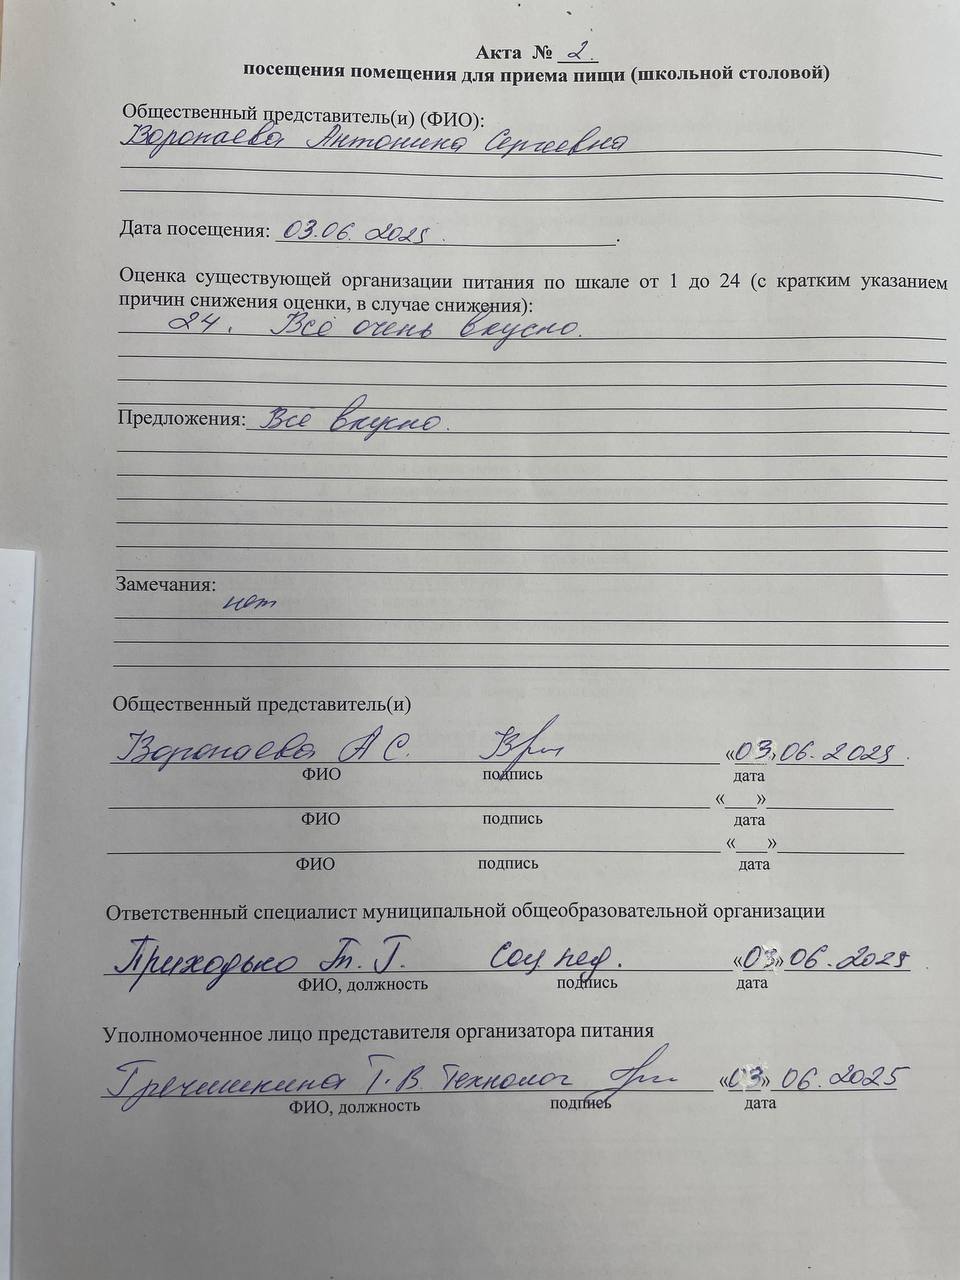 Акта № 2.
посещения помещения для приема пищи (школьной столовой)
Общественный представитель(и) (ФИО):
Воропаева Антонина Сергеевна
Дата посещения: 03.06.2025.
Оценка существующей организации питания по шкале от 1 до 24 (с кратким указанием
причин снижения оценки, в случае снижения):
24. Всё очень вкусно.
Предложения: Всё вкусно.
Замечания:
нет
Общественный представитель(и)
Воропаева А С. «03» 06.2025.
ФИО подпись дата
«___»
ФИО подпись дата
«___»
ФИО подпись дата
Ответственный специалист муниципальной общеобразовательной организации
Приходько Т. Г. Соц пед. «03» 06.2025
ФИО, должность подпись дата
Уполномоченное лицо представителя организатора питания
Гречишкина Т.В. Технолог «03» 06.2025
ФИО, должность подпись дата